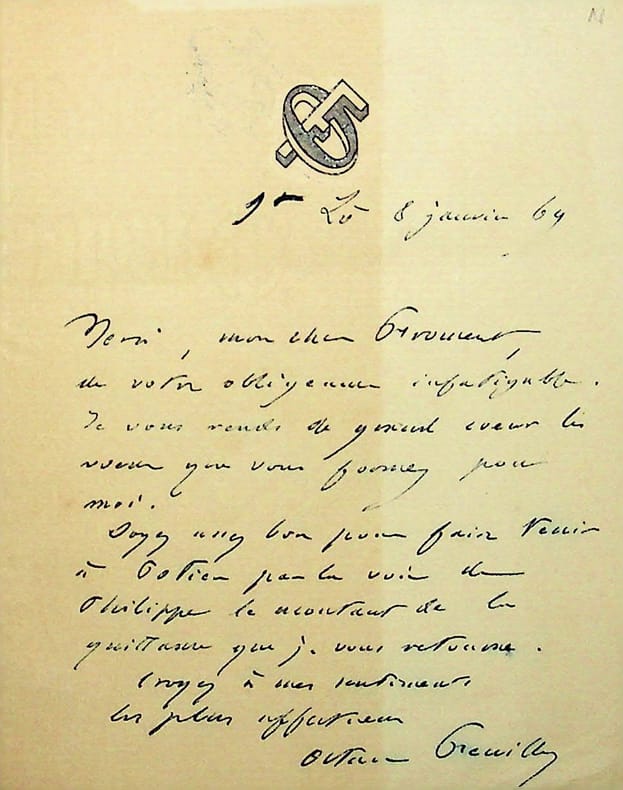 St Lô 8 janvier 69
Merci, mon cher Froment,
de votre obligeance infatigable.
Je vous rends de grand coeur les
voeux que vous formez pour
moi.
Soyez assez bon pour faire tenir
à par la voie de
Philippe le montant de la
quittance que je vous retourne.
Croyez à mes sentiments
les plus affectueux
Octave